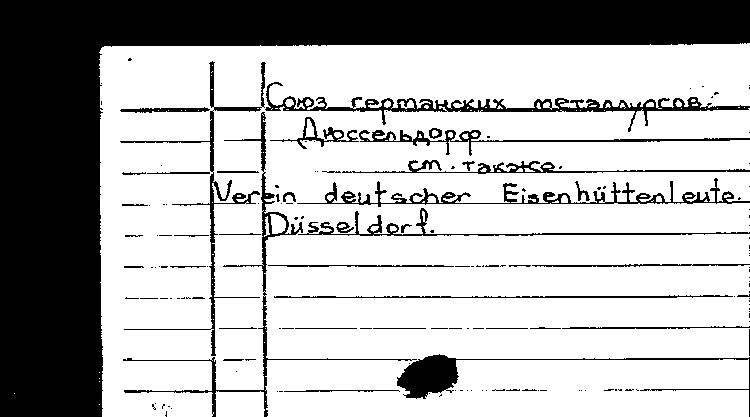 Союз германских металлургов.
Дюссельдорф.
см. также.
Verein deutscher Eisenhüttenleute.
Düsseldorf.